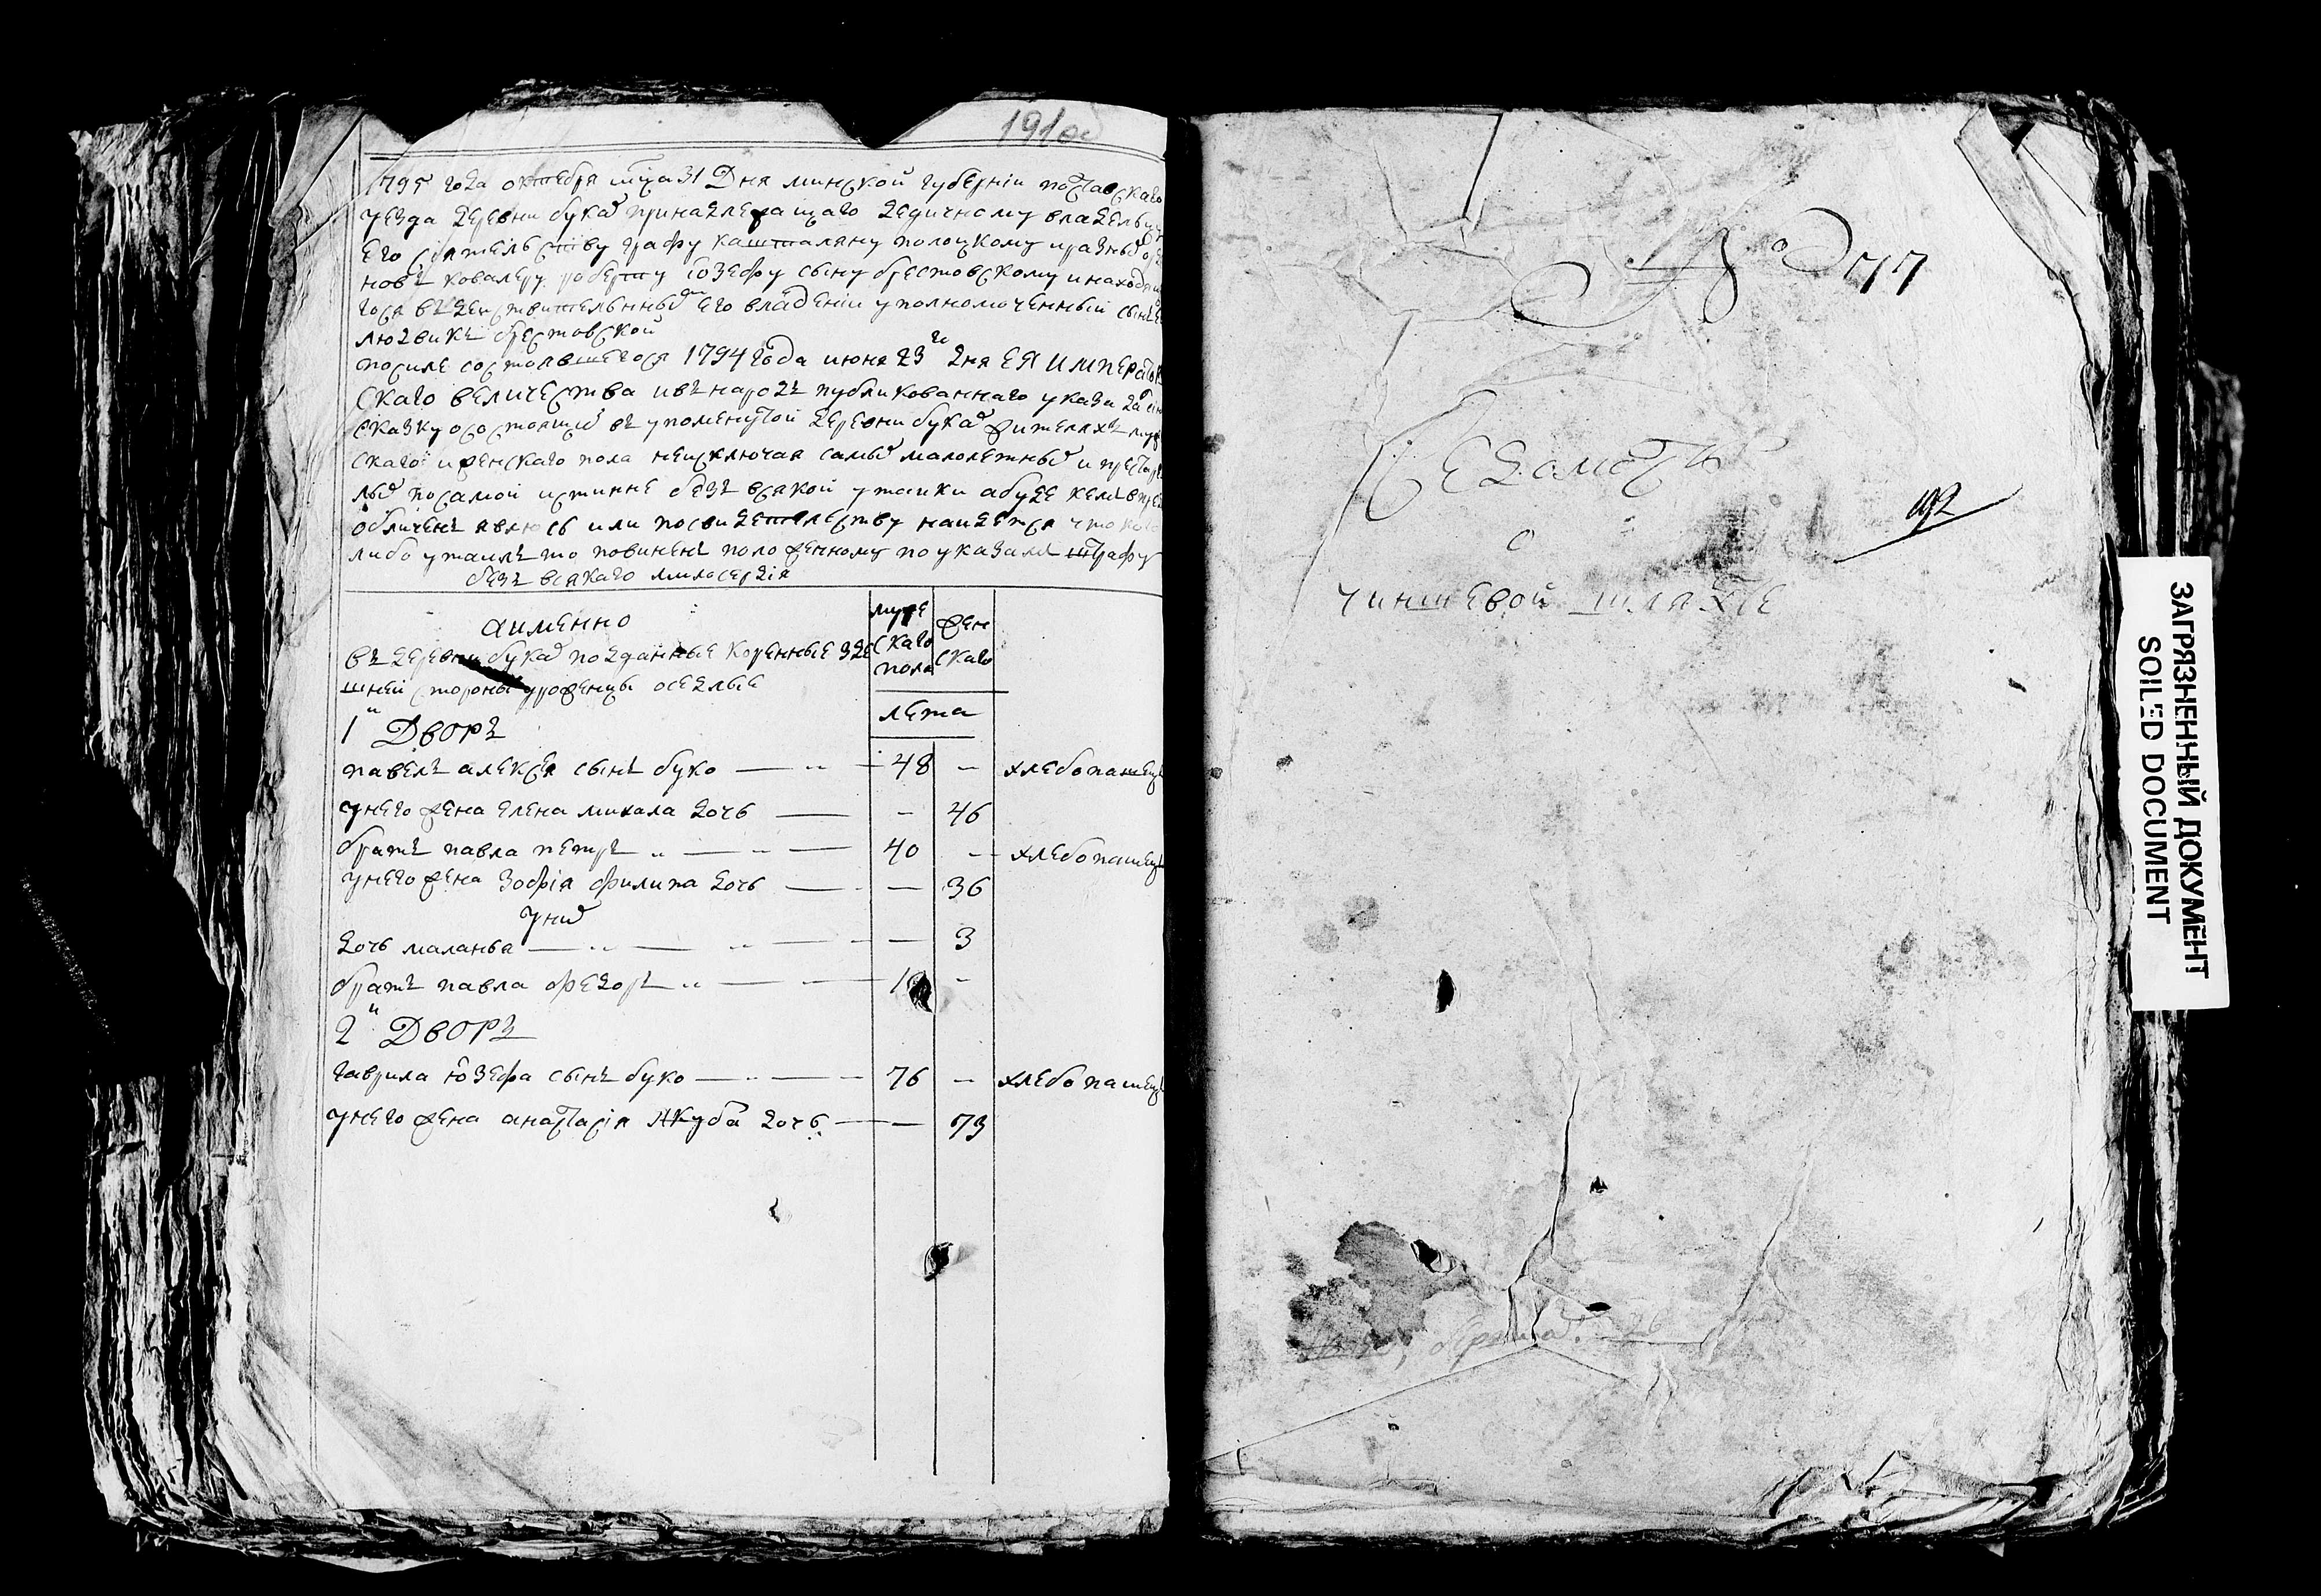 191об
1795 года октября мца 31 Дня минской губерніи поставскаго
уезда деревни букаѵ принадлежащаго дедичному владельцу
Его сіятельству графу кашталяну полоцкому и разныхъ орде
новъ ковалеру роберту Іозефу сыну брестовскому и находящ
гося въ действительныхъ его владеніи уполномоченный сынъ е
людвикъ брестовской
посиле состоявшегося 1794 года июня 23го дня ЕЯ ИМПЕРАТОР
Скаго величества и въ народъ публикованнаго указа даю сію
сказку о состоящихъ въ упоменутой деревни букахъ жителяхъ муж
скаго и женскаго пола неисключая самыхъ малолетныхъ и престаре
лыхъ посамой истинне безъ всякой утаики а буде кемъ впред
обличенъ явлюсь или посвидетелству наидется что кого
либо утаилъ то повиненъ положенному по указамъ штрафу
безъ всякаго милосердія
аименно
муже скаго пола
жен скаго
въ деревни букахъ позданные коренные зде
шней стороны уроженцы оседлые
лета
1й Дворъ
павелъ алексея сынъ буко 48 - хлебопашецъ
унего жена елена михала дочь - 46
братъ павла петръ 40 - хлебопашецъ
унего жена зофія филипа дочь - 36
унихъ
дочь маланья - 3
братъ павла федоръ 1 -
2й Дворъ
гаврила юзефа сынъ буко 76 - хлебопашецъ
унего жена анастасія якуба дочь - 73
№ 77
Ведомость
192
о
чиншевой шляхте
ЗАГРЯЗНЕННЫЙ ДОКУМЕНТ
SOILED DOCUMENT